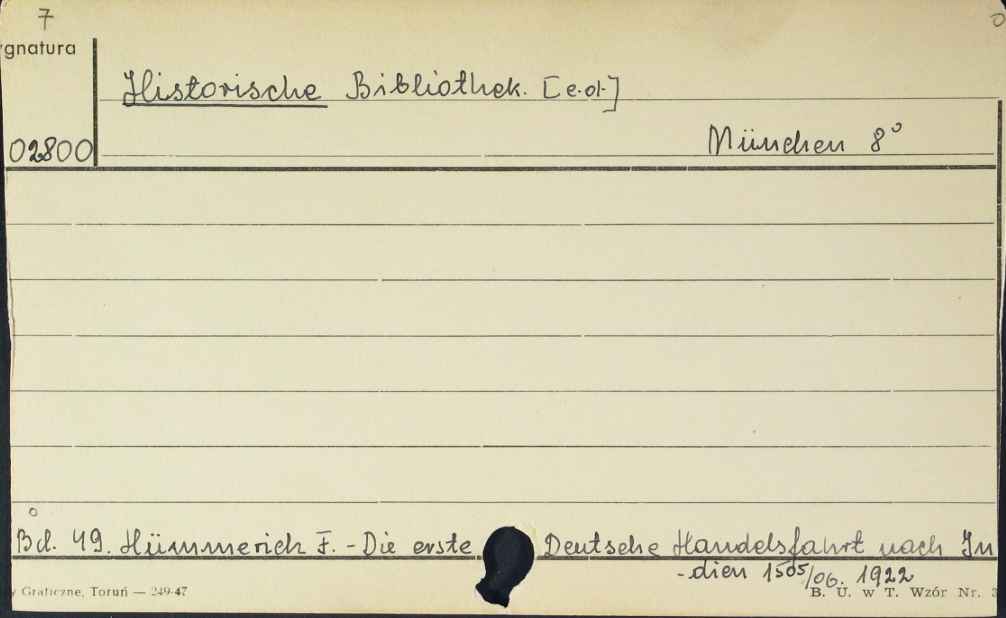 7
ygnatura
Historische Bibliothek. [e.ot.]
02800
München 8°
Bd. 49. Hümmerich F. - Die erste Deutsche Handelsfahrt nach In
- dien 1505/06. 1922
y Graficzne, Toruń — 249-47
B. U. w T. Wzór Nr. 3